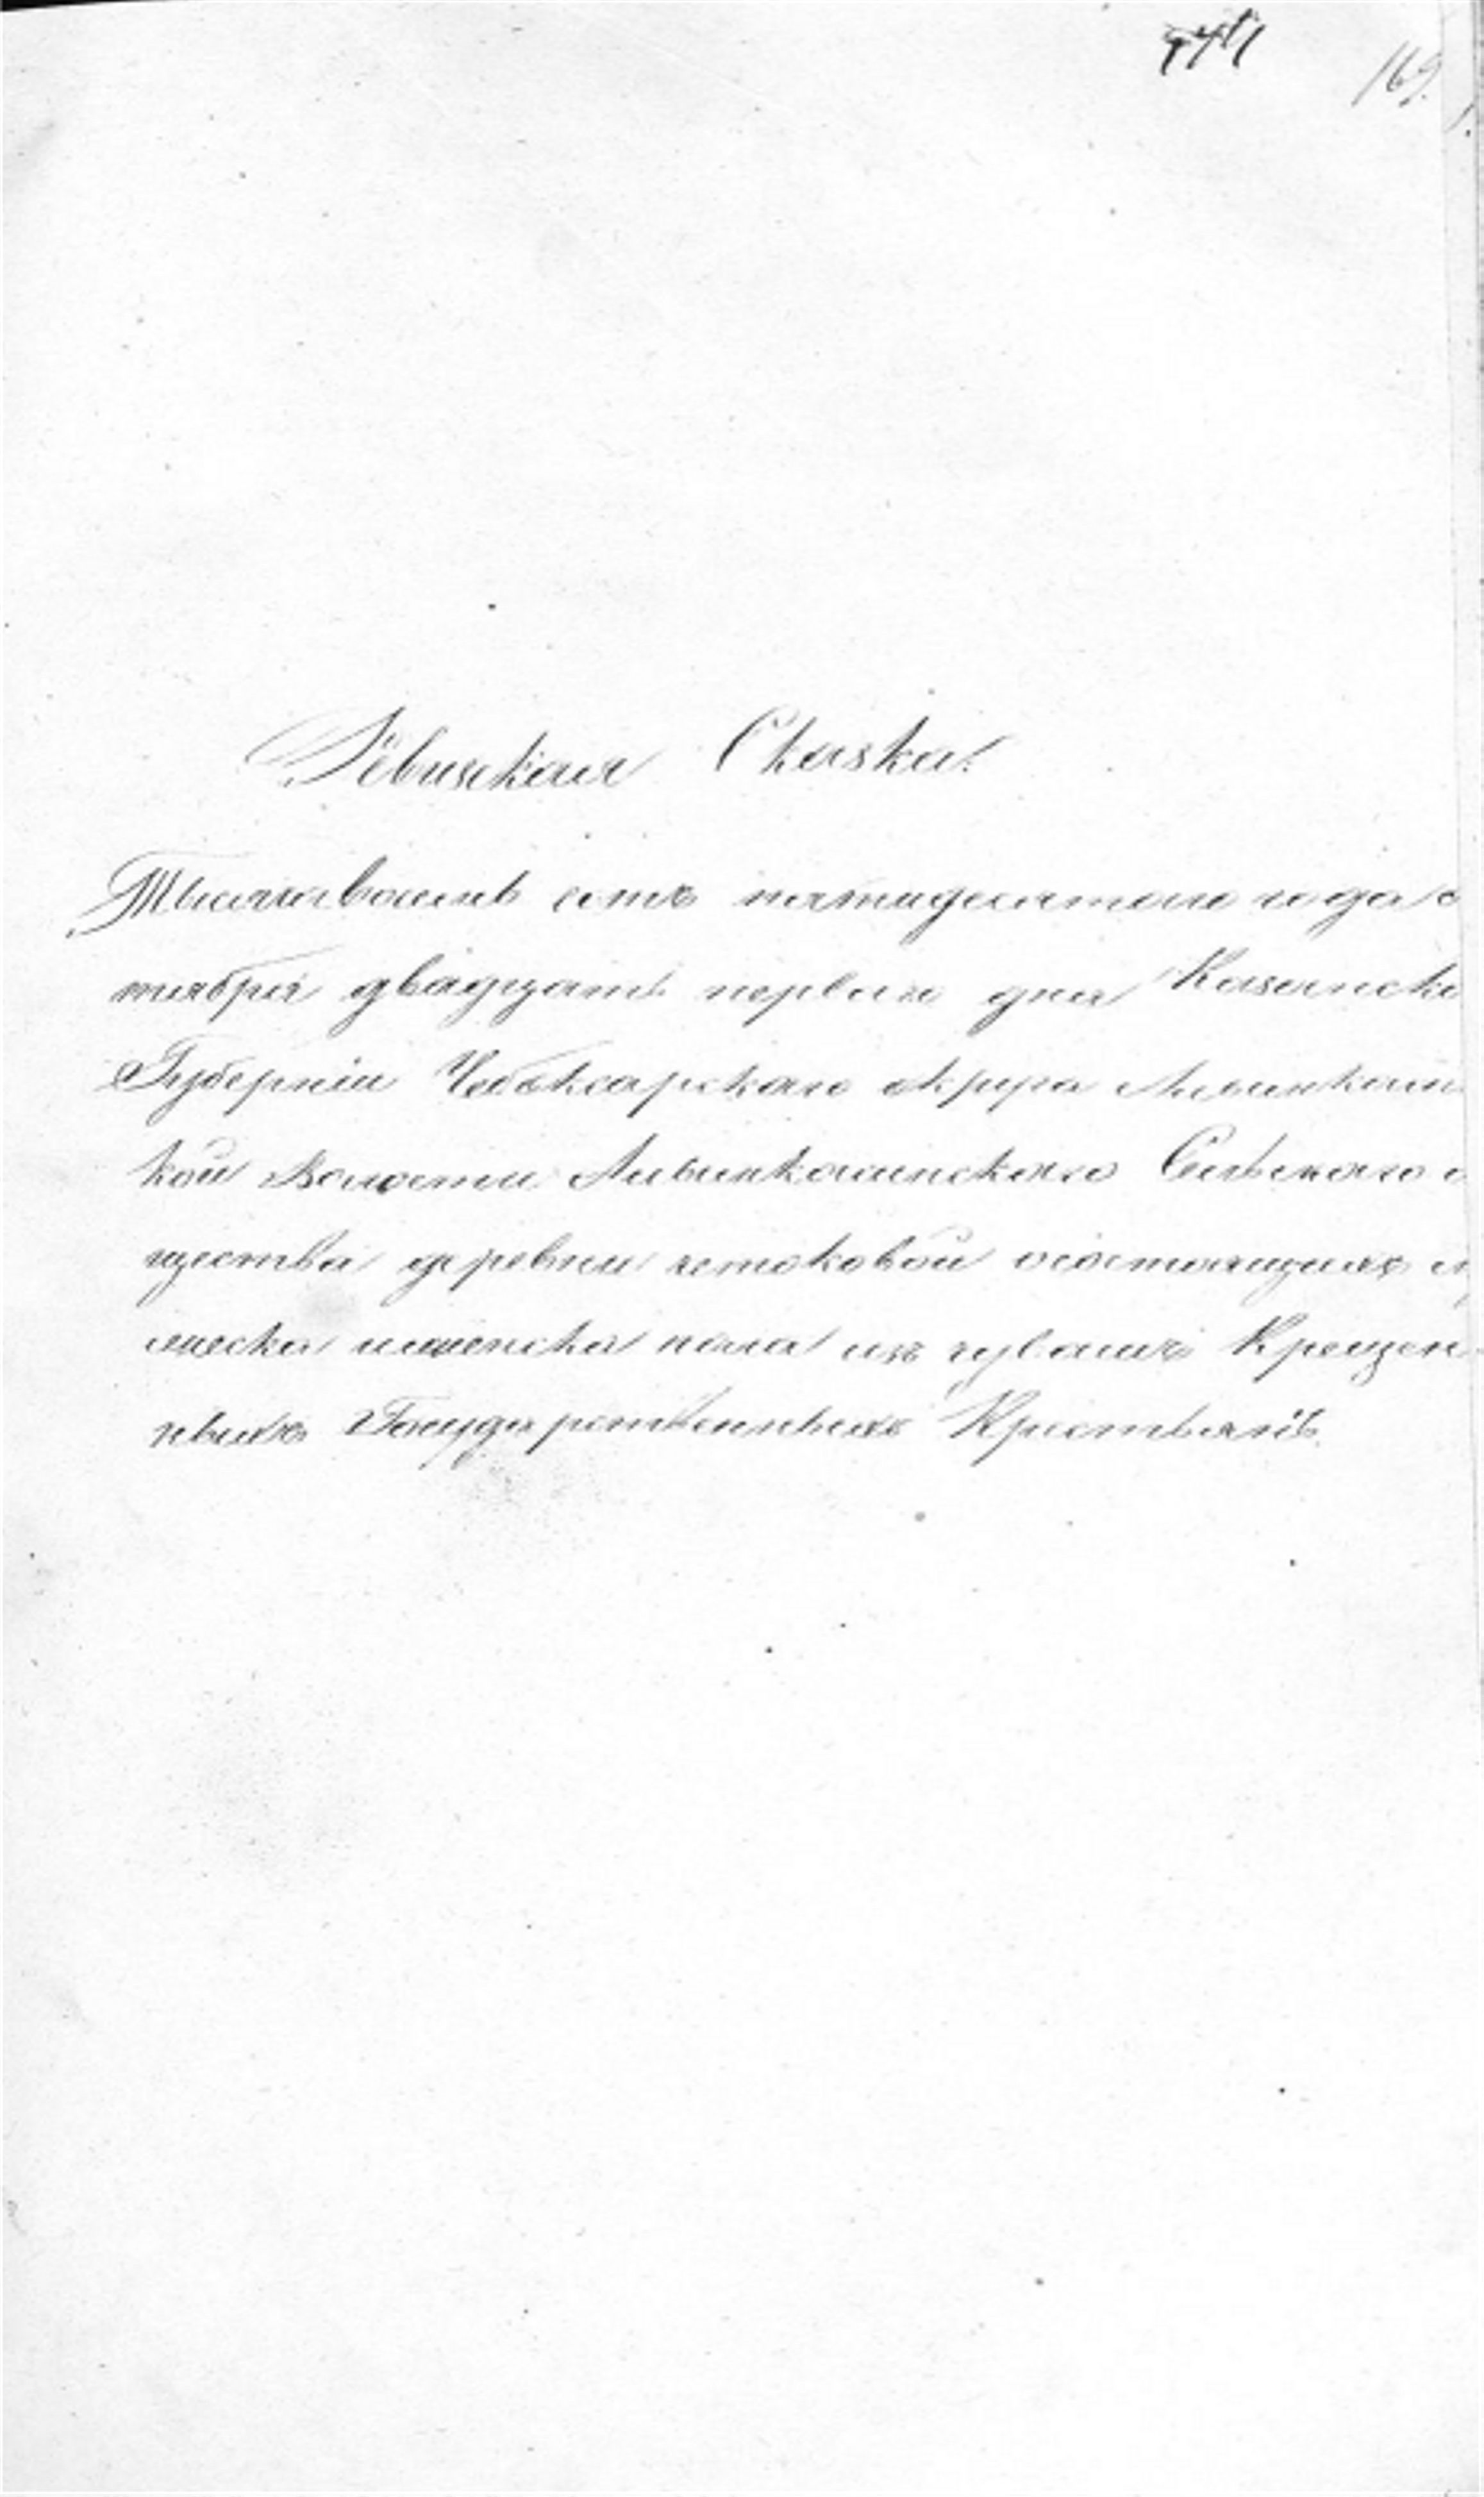 169.
Ревизская Сказка.
Тысяча восемь сотъ пятидесятого года о
тября двадцать первого дня Казанско
Губерніи Чебоксарскаго округа
кой Волости Сельскаго о
щества деревни четоковой о состоящихъ
мужеска и женска пола изъ чувашъ Крещен
ныхъ Государственныхъ Крестьянъ